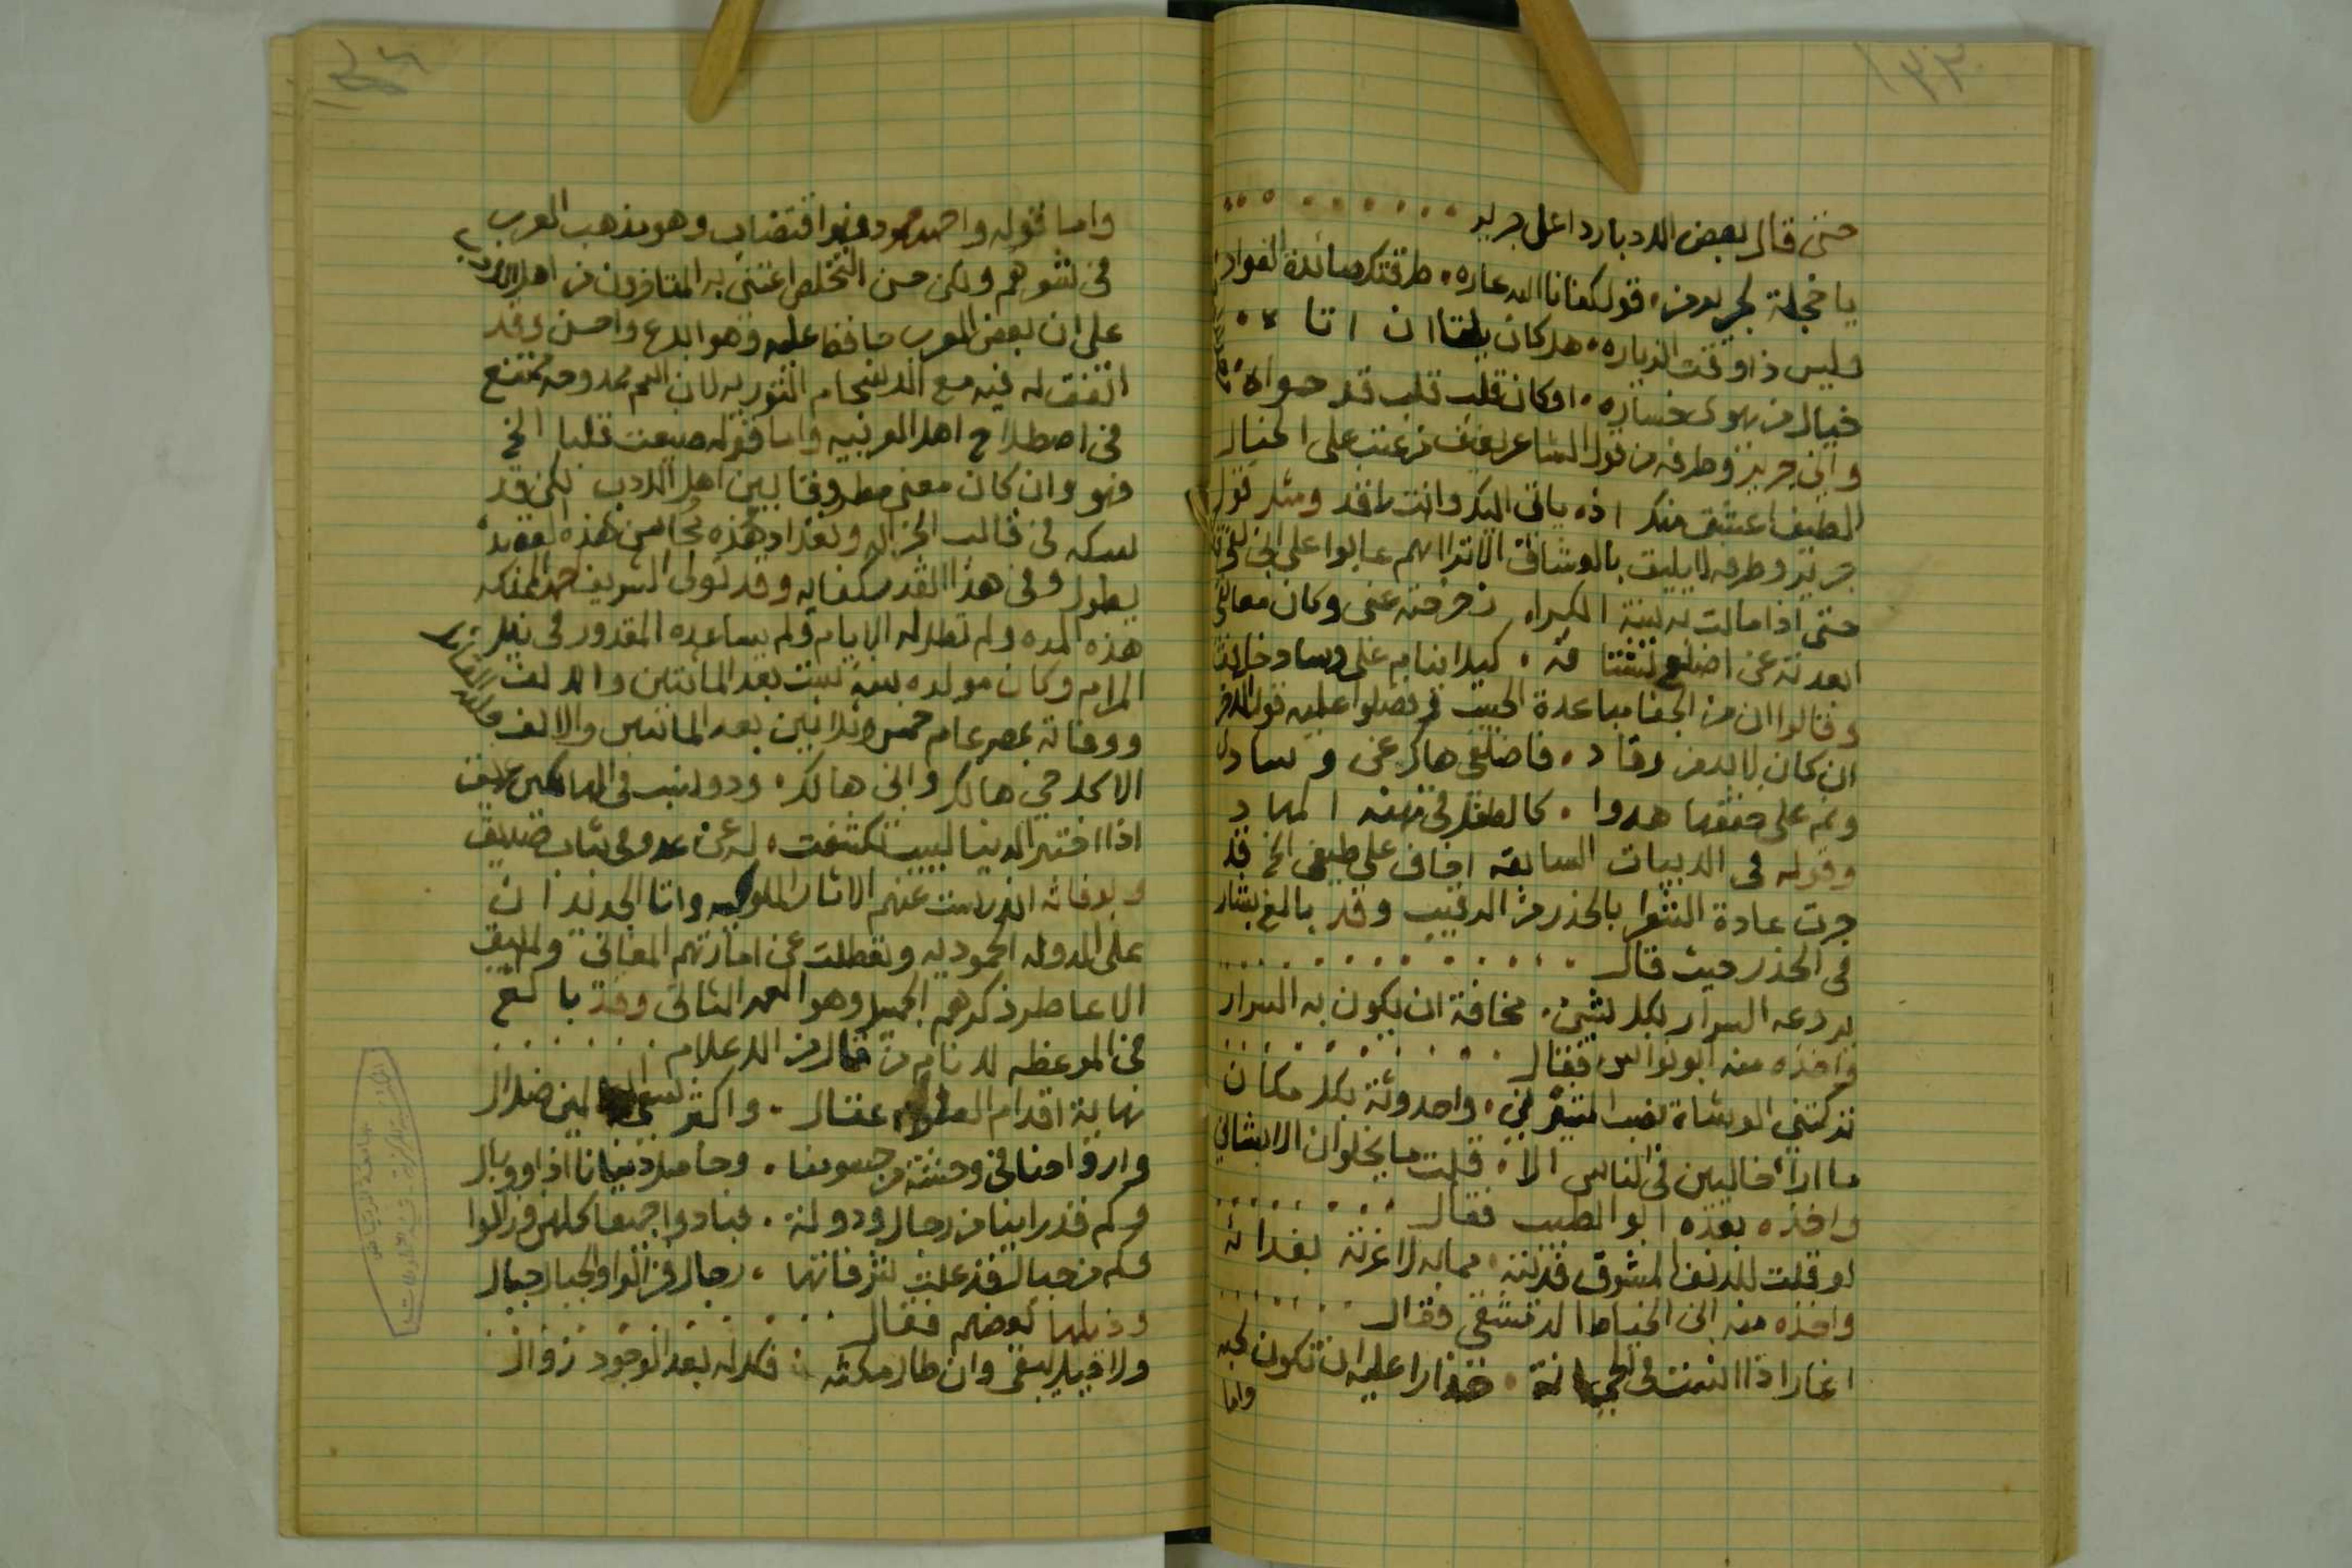 حتى قال بعض الادبا ردا على جرير
يا خجلة لجرير من قول كفانا الله عاره طرقتك صائدة الفواد
وليس ذا وقت الزياره هل كان يلقا ان اتاه
خيال من يهوى خساره او كان قلب قلب قد حواه
واين جرير وطرفه من قول الشاعر عفيف زعتب على الخيال
الطيف اعشق منك اذ ياتي اليك وانت راقد ومثل قول
جرير وطرفه لا يليق بالعشاق الا ترا انهم عابوا على ابن بقي
حتى اذا مالت به سنة الكرا زحزحته عني وكان معانقي
ابعدته عن اضلع تشتاقه كيلا ينام على وساد خافق
وقالوا ان من الجفا مباعدة الحبيب وفضلوا عليه قول الاخر
ان كان لا بد من رقاد فاضلعي هاك عن وساد
ونم على خفقها هدوا كالطفل في نهنه المهاد
وقوله في الابيات السابقه اخاف على طيفي الخ قد
جرت عادة الشعرا بالحذر من الرقيب وقد بالغ بشار
في الحذر حيث قال
يروعه السرار بكل شيء مخافة ان يكون به السرار
واخذه منه ابو نواس فقال
تركتني الوشاة نصب المشيرين واحدوثة بكل مكان
ما ارا خاليين في الناس الا قلت ما يخلوان الا لشاني
واخذه بعده ابو الطيب فقال
لو قلت للدنف المشوق فديته مما به لاغرته بفدائه
واخذه منه ابن الخياط الدمشقي فقال
اغار اذا انست في الحي انة حذارا عليه ان تكون لحبه
واما
واما قوله واحمد محمود فهو اقتضاب وهو مذهب العرب
في شعرهم ولكن حسن التخلص اعتنى به المتاخرون من اهل الادب
على ان بعض العرب حافظ عليه وهو ابدع واحسن وقد
اتفقت له فيه مع الانسجام التوريه لان اسم ممدوحه ممتنع
في اصطلاح اهل العربيه واما قوله ضيعت قلبا الخ
فهو وان كان معنى مطروقا بين اهل الادب لكن قد
سبكه في قالب الجزاله وتعداد هذه محاسن هذه القصيده
يطول وفي هذا القدر كفايه وقد تولى الشريف احمد المذكور
هذه المده ولم تطل له الايام ولم يساعده المقدور في نيل
المرام وكان مولده سنة ست بعد المائتين والالف
ووفاته بمصر عام خمس وثلاثين بعد المائتين والالف
الا كل حي هالك وابن هالك وذو نسب في الهالكين عريق
اذا اختبر الدنيا لبيب تكشفت له عن عدو في ثياب صديق
وبوفاته اندرست عنهم الاثار الملوكيه واتا الجديدان
على الدوله الحموديه وتعطلت عن امارتهم المغاني ولم يبق
الا عاطر ذكرهم الجميل وهو العمر الثاني وقد بالغ
في الموعظه للانام من قال من الاعلام
نهاية اقدام العقول عقال واكثر سعي العالمين ضلال
وارواحنا في وحشة من جسومنا وحاصل دنيانا اذا ووبال
وكم قد راينا من رجال ودولة فبادوا جميعا كلهم وزالوا
وكم من جبال قد علت شرفاتها رجال فزالوا والجبال جبال
وذيلها بعضهم فقال
ولا قيل يبقى وان طال مكثه فكل له بعد الوجود زوال